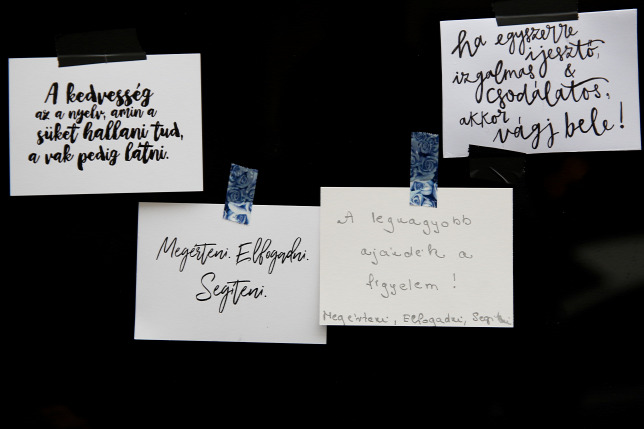 A kedvesség
az a nyelv, amin a
süket hallani tud,
a vak pedig látni.
ha egyszerre
ijesztő,
izgalmas &
csodálatos,
akkor
vágj bele!
Megérteni. Elfogadni.
Segíteni.
A legnagyobb
ajándék a
figyelem!
Megérteni, Elfogadni, Segíteni